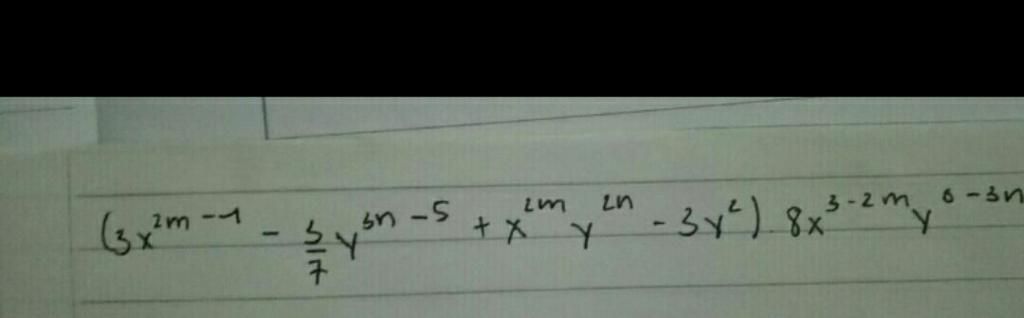 (3x^{2m-1} - \frac{5}{7}y^{3n-5} + x^{2m}y^{2n} - 3y^2) 8x^{3-2m}y^{6-3n}